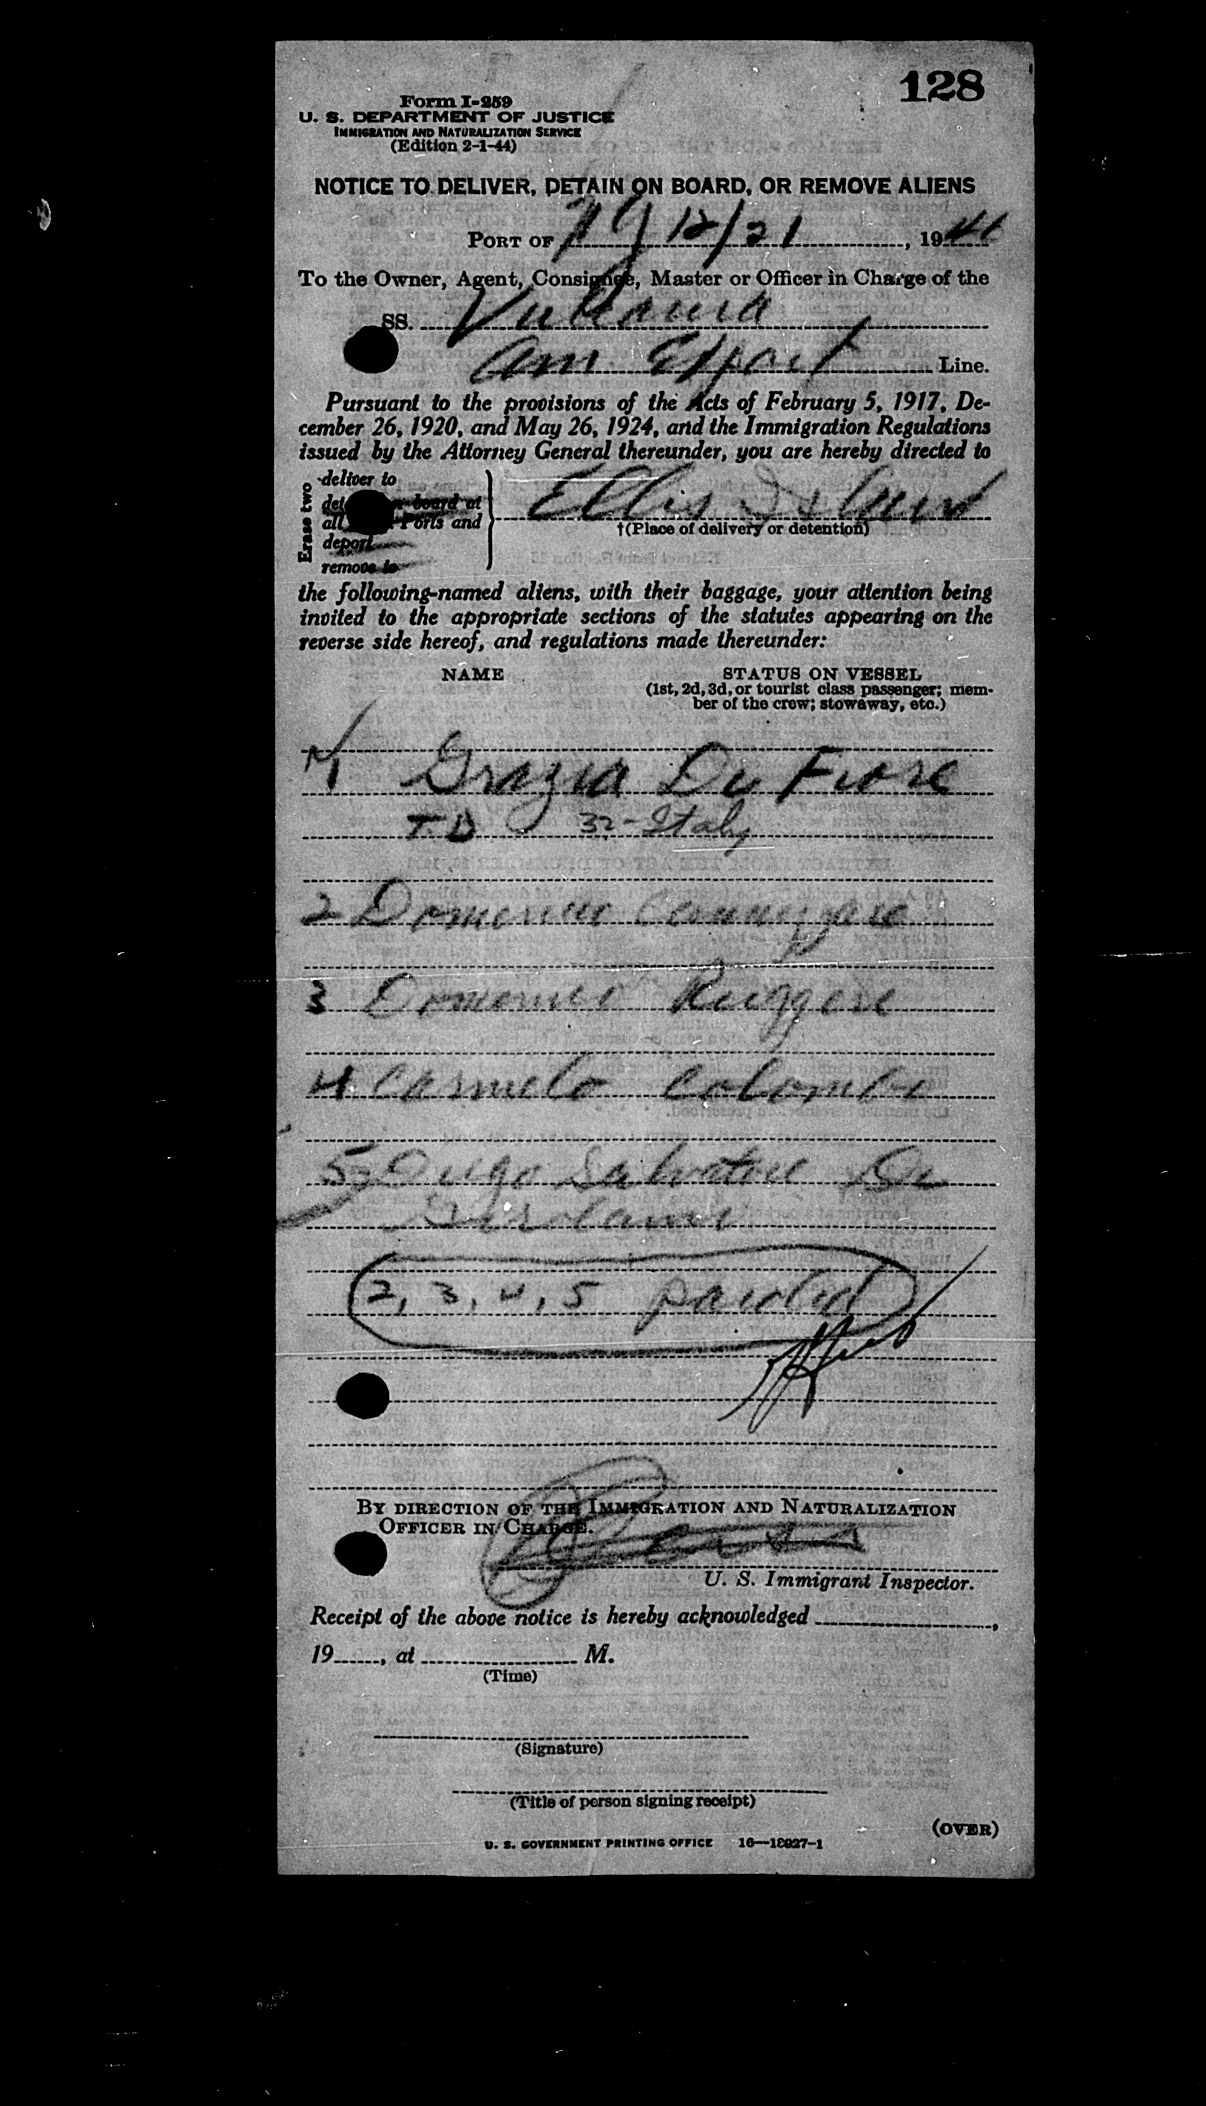 128
Form I-259
U. S. DEPARTMENT OF JUSTICE
IMMIGRATION AND NATURALIZATION SERVICE
(Edition 2-1-44)
NOTICE TO DELIVER, DETAIN ON BOARD, OR REMOVE ALIENS
PORT OF NY 12/21, 1946
To the Owner, Agent, Consignee, Master or Officer in Charge of the
SS. Vulcania
Am Export Line.
Pursuant to the provisions of the Acts of February 5, 1917, De-
cember 26, 1920, and May 26, 1924, and the Immigration Regulations
issued by the Attorney General thereunder, you are hereby directed to
Erase two
deliver to
board at
all Ports and
deport
remove to
Ellis Island
†(Place of delivery or detention)
the following-named aliens, with their baggage, your attention being
invited to the appropriate sections of the statutes appearing on the
reverse side hereof, and regulations made thereunder:
NAME
STATUS ON VESSEL
(1st, 2d, 3d, or tourist class passenger; mem-
ber of the crew; stowaway, etc.)
1 Grazia Di Fiore
T D 32 - Italy
2 Domenico
3 Domenico Ruggeri
4 Carmelo Colombi
5 Diego Salvatore Di
Girolami
2, 3, 4, 5 paroled
BY DIRECTION OF THE IMMIGRATION AND NATURALIZATION
OFFICER IN CHARGE.
U. S. Immigrant Inspector.
Receipt of the above notice is hereby acknowledged
19, at M.
(Time)
(Signature)
(Title of person signing receipt)
(OVER)
U. S. GOVERNMENT PRINTING OFFICE 16—18927-1